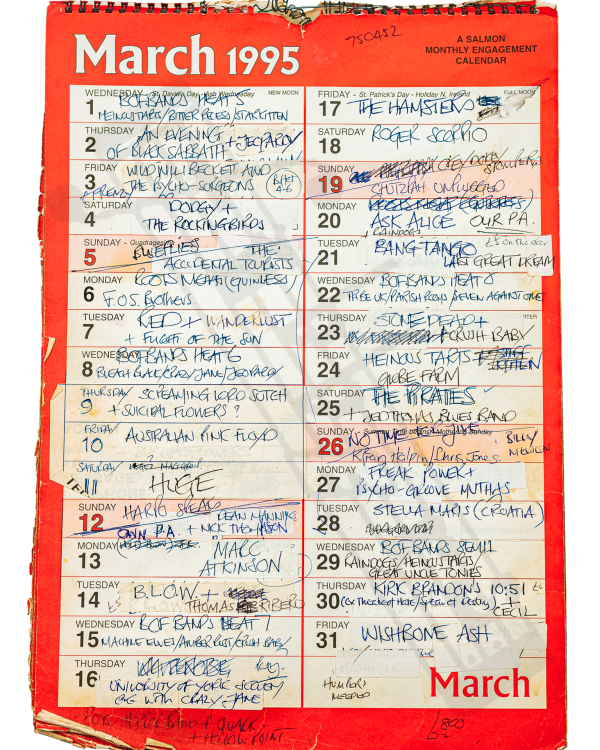 March 1995
750452
A SALMON
MONTHLY ENGAGEMENT
CALENDAR
WEDNESDAY - St. David's Day - Ash Wednesday NEW MOON
1 BOF BANDS HEAT 5
HEINOUS TARTS/BITTER RULES/STARKITTEN
THURSDAY
2 AN EVENING
OF BLACK SABBATH + JEOPARDY
FRIDAY
3 WILD WILLI BECKETT AND
THE PSYCHO-SURGEONS
+ FRENZY
SATURDAY
4 DODGY +
THE ROCKINGBIRDS
SUNDAY - Quadragesima
5 BLUEFLIES THE
ACCIDENTAL TOURISTS
MONDAY
6 ROOTS NIGHT (GUINNESS)
F.O.S. Brothers
TUESDAY
7 RED + WANDERLUST
+ FLIGHT OF THE SUN
WEDNESDAY
8 BOF BANDS HEAT 6
BLEACH BLACK/CRAZY JANE/JEOPARDY
THURSDAY
9 SCREAMING LORD SUTCH
+ SUICIDAL FLOWERS ?
FRIDAY
10 AUSTRALIAN PINK FLOYD
SATURDAY
11 HUGE
SUNDAY
12 HARPO SPEAKS DEAN MANNING
OWN P.A. + NICK THOMPSON
MONDAY
13 MARC
ATKINSON
TUESDAY
14 B.L.O.W. +
THOMAS RIBEIRO
WEDNESDAY
15 BOF BANDS HEAT 7
MACHINE ELVES/AMBER RUTT/CRUSH BABY
THURSDAY
16
UNIVERSITY OF YORK SOCIETY
GIG WITH CRAZY JANE
FRIDAY - St. Patrick's Day - Holiday N. Ireland FULL MOON
17 THE HAMSTERS
SATURDAY
18 ROGER SCORPIO
SUNDAY
19 OKEY DOKE/STOMPERS
SHUTTAH UNPLUGGED
MONDAY
20 ASK ALICE OUR P.A.
+ RAINDOGS
TUESDAY
21 BANG TANGO £5 on the door
LAST GREAT DREAM
WEDNESDAY
22 BOF BANDS HEAT 8
TRIBE UK/PARISH ROOD/SEVEN AGAINST ONE
THURSDAY
23 STONE DEAD +
CRUSH BABY
FRIDAY
24 HEINOUS TARTS
GLOBE FARM
SATURDAY
25 THE PIRATES
+ JED THOMAS BLUES BAND
SUNDAY - Summer Time begins - Mothering Sunday
26 NO TIME FOR JIVE BILLY
Kieran Halpin/Chris Jones
MONDAY
27 FREAK POWER +
PSYCHO-GROOVE MUTHAS
TUESDAY
28 STELLA MARIS (CROATIA)
WEDNESDAY
29 BOF BANDS SEMI 1
RAINDOGS/HEINOUS TARTS/
GREAT UNCLE TONIES
THURSDAY
30 KIRK BRANDONS 10:51
(Ex Theatre of Hate/Spear of Destiny) +
CECIL
FRIDAY
31 WISHBONE ASH
HUMPERS
NEEDED
March